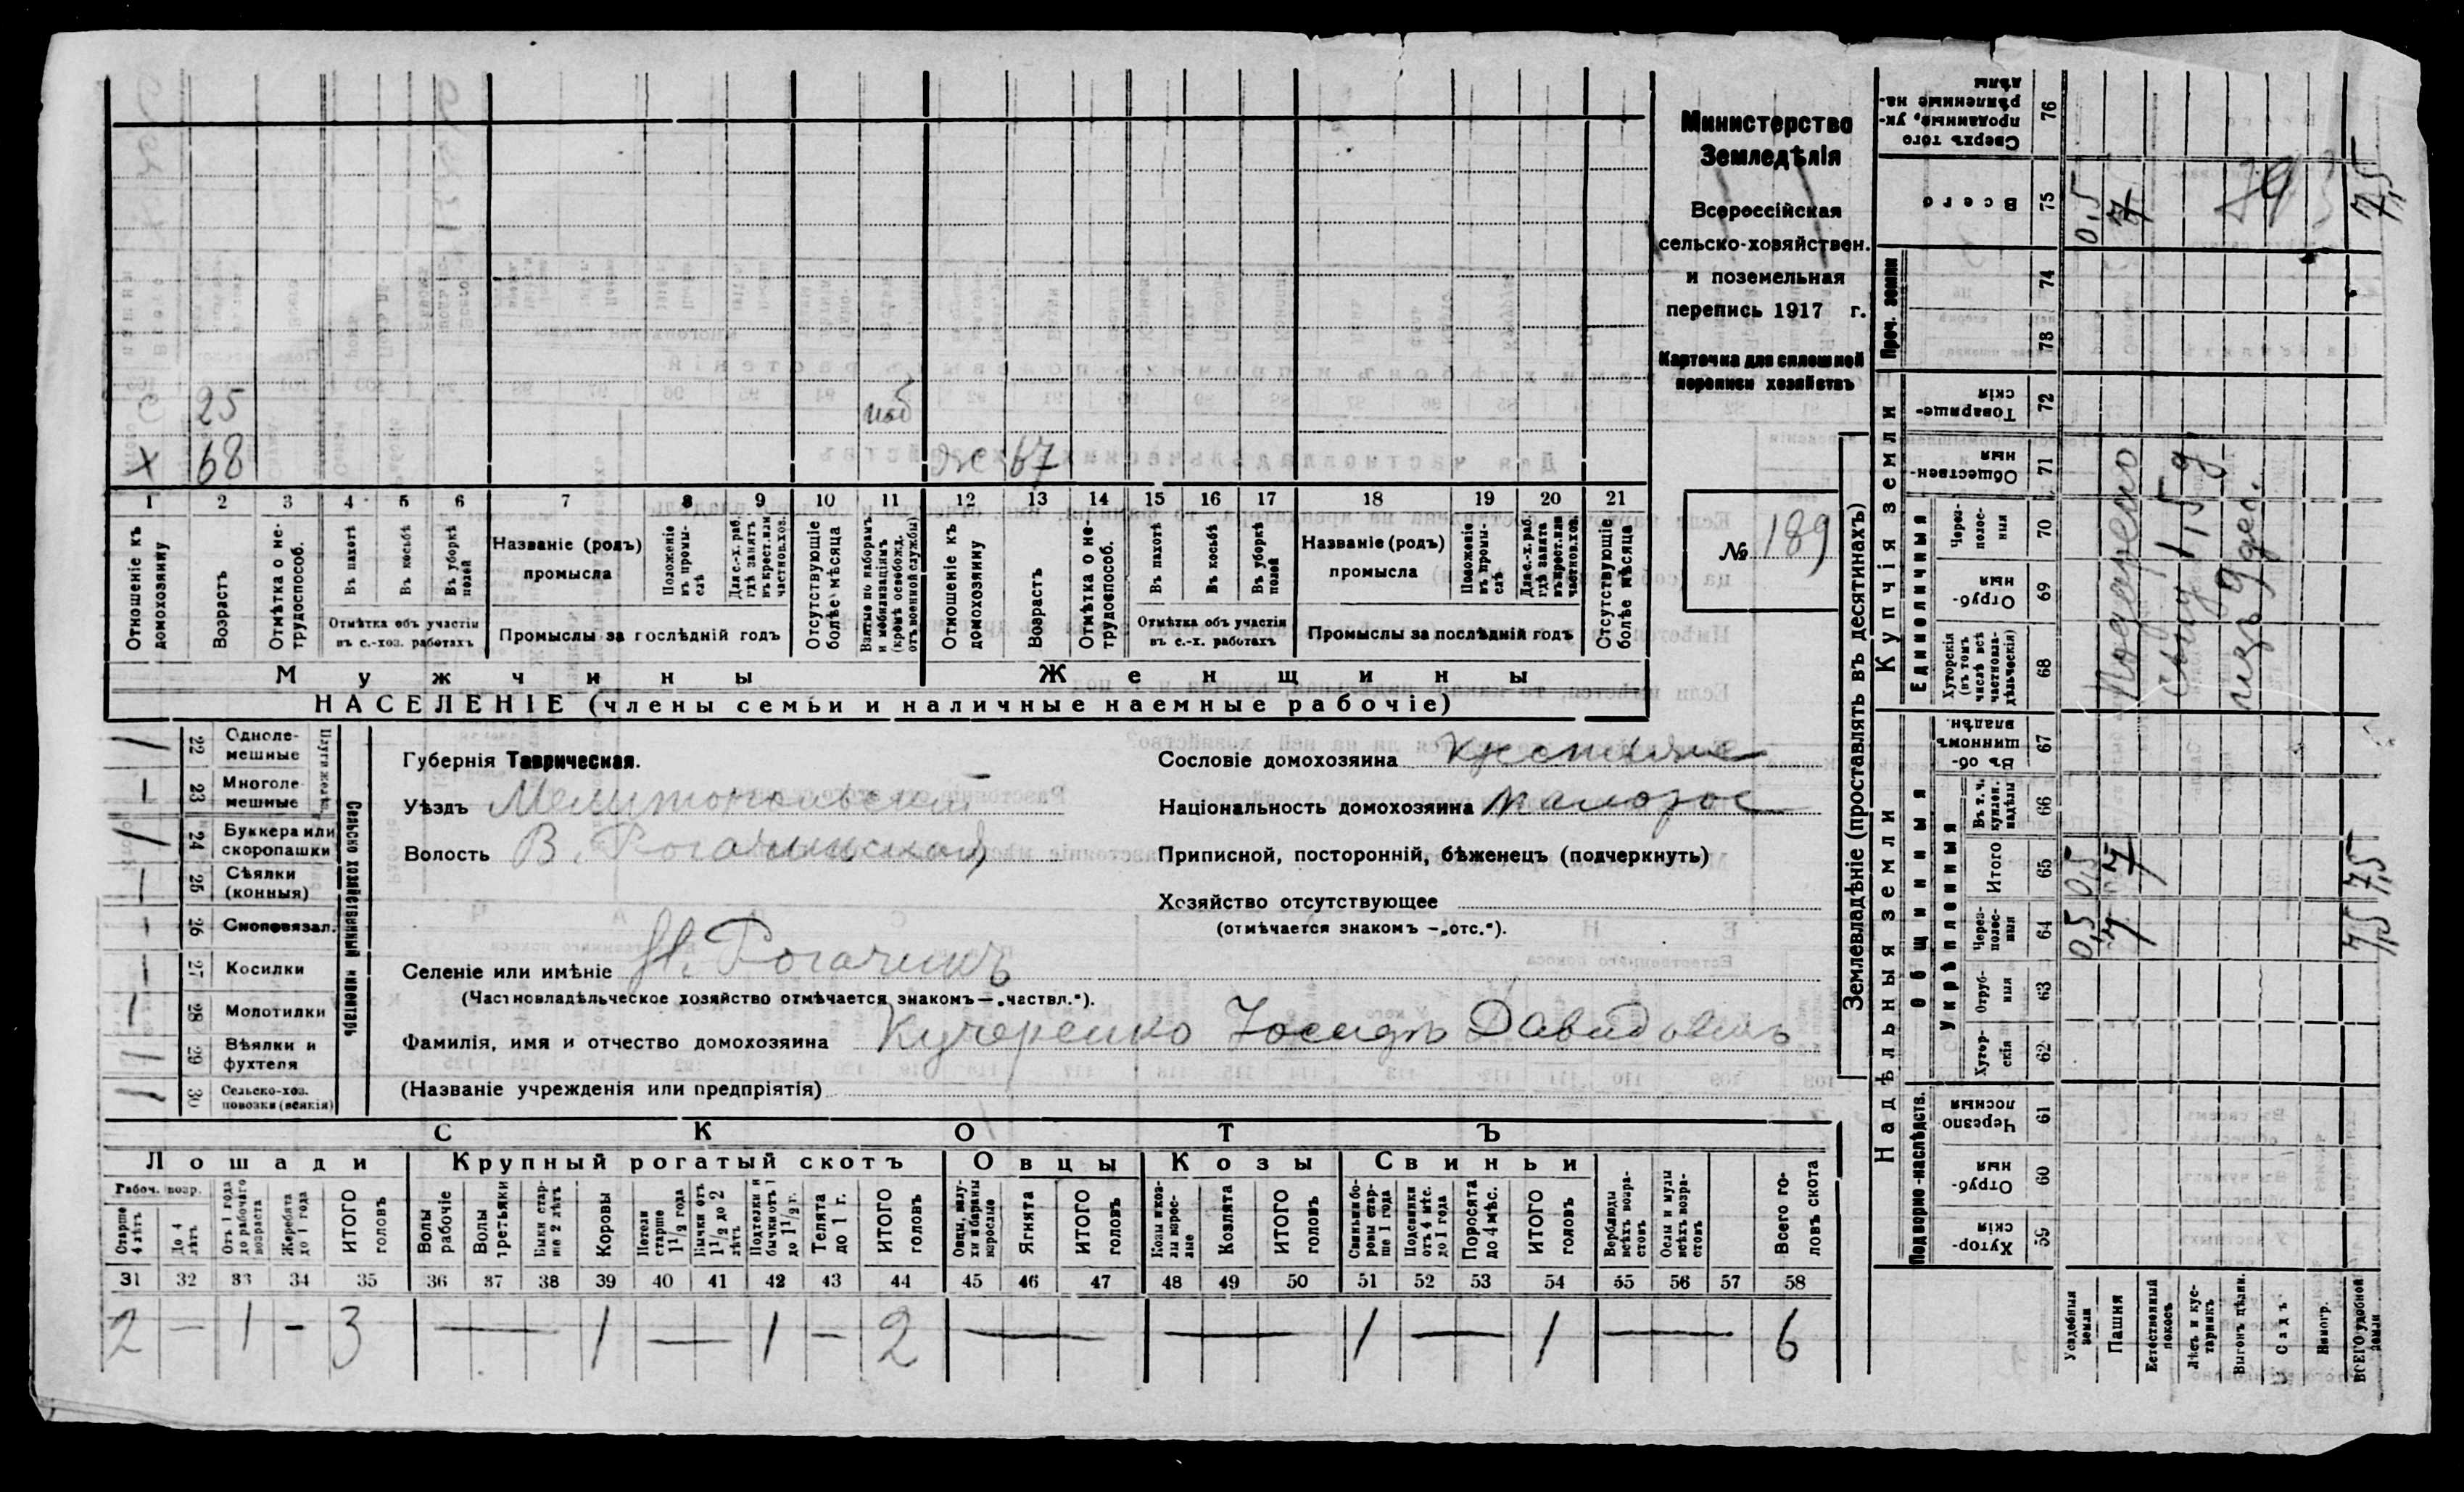 Министерство
Земледѣлія
Всероссійская
сельско-хозяйствен.
и поземельная
перепись 1917 г.
Карточка для сплошной
переписи хозяйствъ
№ 189
С 25 моб
х 68 Ж 67
1 2 3 4 5 6 7 8 9 10 11 12 13 14 15 16 17 18 19 20 21
Отношеніе къ домохозяину
Возрастъ
Отмѣтка о нетрудоспособ.
Въ пахотѣ
Въ косьбѣ
Въ уборкѣ полей
Отмѣтка объ участіи въ с.-хоз. работахъ
Названіе (родъ) промысла
Положеніе въ промыслѣ
Для с.-х. раб. гдѣ занятъ въ крест. или частнов. хоз.
Промыслы за послѣдній годъ
Отсутствующіе болѣе мѣсяца
Взятые по наборамъ и мобилизаціямъ (кромѣ освобожд. отъ военной службы)
Отношеніе къ домохозяину
Возрастъ
Отмѣтка о нетрудоспособ.
Въ пахотѣ
Въ косьбѣ
Въ уборкѣ полей
Отмѣтка объ участіи въ с.-х. работахъ
Названіе (родъ) промысла
Положеніе въ промыслѣ
Для с.-х. раб. гдѣ занята въ крест. или частнов. хоз.
Промыслы за послѣдній годъ
Отсутствующіе болѣе мѣсяца
Мужчины Женщины
НАСЕЛЕНІЕ (члены семьи и наличные наемные рабочіе)
Сельско хозяйственный инвентарь
22 Однолемешные
23 Многолемешные
24 Буккера или скоропашки
25 Сѣялки (конныя)
26 Сноповязал.
27 Косилки
28 Молотилки
29 Вѣялки и фухтеля
30 Сельско-хоз. повозки (всякія)
Губернія Таврическая.
Уѣздъ Мелитопольскій
Волость В. Рогачикской
Селеніе или имѣніе Н. Рогачикъ
(Частновладѣльческое хозяйство отмѣчается знакомъ—„частвл.").
Фамилія, имя и отчество домохозяина Кучеренко Іосифъ Давидовичъ
(Названіе учрежденія или предпріятія)
Сословіе домохозяина крестьяне
Національность домохозяина малорос
Приписной, посторонній, бѣженецъ (подчеркнуть)
Хозяйство отсутствующее
(отмѣчается знакомъ —„отс.").
СКОТЪ
Лошади Крупный рогатый скотъ Овцы Козы Свиньи
Рабоч. возр.
Старше 4 лѣтъ
До 4 лѣтъ
Отъ 1 года до рабочаго возраста
Жеребята до 1 года
ИТОГО головъ
Волы рабочіе
Волы третьяки
Быки старше 2 лѣтъ
Коровы
Нетели старше 1½ года
Бычки отъ 1½ до 2 лѣтъ
Подтелки и бычки отъ 1 до 1½ г.
Телята до 1 г.
ИТОГО головъ
Овцы, валухи и бараны взрослые
Ягнята
ИТОГО головъ
Козы и козлы взрослые
Козлята
ИТОГО головъ
Свиньи боровы старше 1 года
Подсвинки отъ 4 мѣс. до 1 года
Поросята до 4 мѣс.
ИТОГО головъ
Верблюды всѣхъ возрастовъ
Ослы и мулы всѣхъ возрастовъ
Всего головъ скота
31 32 33 34 35 36 37 38 39 40 41 42 43 44 45 46 47 48 49 50 51 52 53 54 55 56 57 58
2 — 1 — 3 — 1 — 1 — 2 — — 1 — 1 — 6
Землевладѣніе (проставлять въ десятинахъ)
Надѣльныя земли
Купчія земли
Проч. земли
Подворно-наслѣдств.
Общинныя
Укрѣпленныя
Единоличныя
Хуторскія 59
Отрубныя 60
Черезполосныя 61
Хуторскія 62
Отрубныя 63
Черезполосныя 64
Итого 65
Въ т. ч. куплен. надѣлы 66
Въ общинномъ владѣн. 67
Хуторскія (въ томъ числѣ всѣ частновладѣльческія) 68
Отрубныя 69
Черезполосныя 70
Общественныя 71
Товарищескія 72
78
74
Всего 75
Сверхъ того проданные, укрѣпленные надѣлы 76
Усадебныя земли 0,5 0,5 0,5
Пашня 7 7 7
Естественный покосъ
Лѣсъ и кустарникъ
Выгонъ цѣлин.
Садъ
Виногр.
ВСЕГО удобной земли 7,5 7,5 7,5
Подарено
сыну 1,5 д
изъ 9 дес.